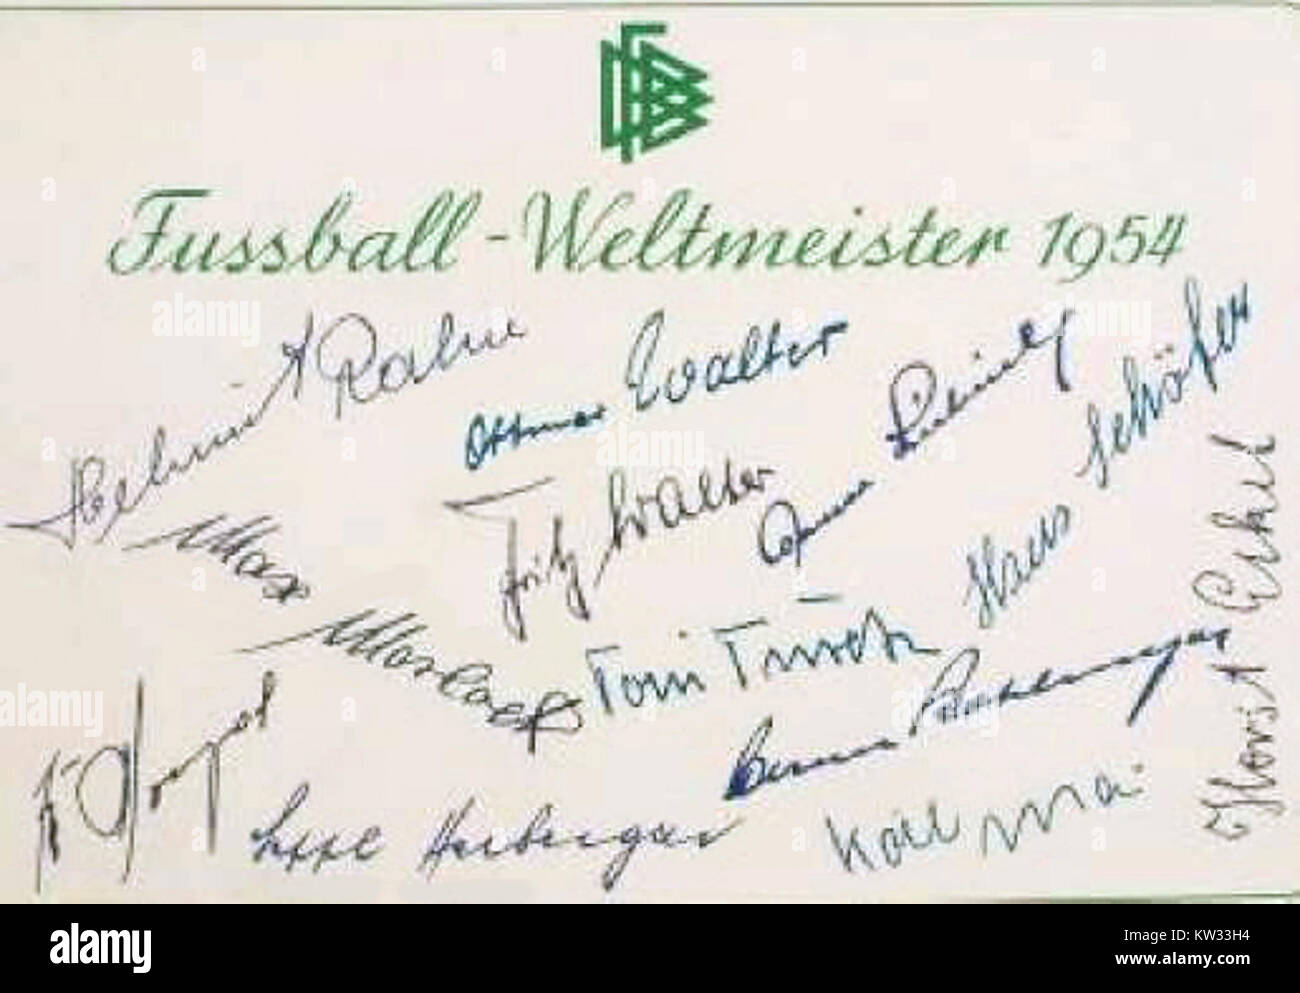 DFB
Fussball-Weltmeister 1954
Helmut Rahn
Ottmar Walter
Fritz Walter
Werner Liebrich
Hans Schäfer
Horst Eckel
Max Morlock
Toni Turek
Werner Kohlmeyer
Sepp Herberger
Karl Mai
alamy
Image ID: KW33H4
www.alamy.com